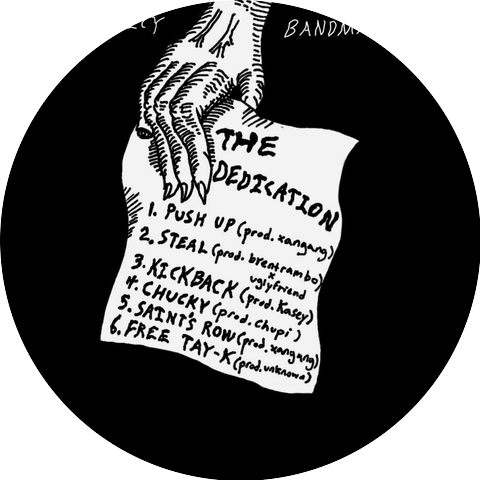 THE
DEDICATION
1. PUSH UP (prod. xangang)
2. STEAL (prod. brentrambo)
x
uglyfriend
3. KICKBACK (prod. Kasey)
4. CHUCKY (prod. chupi)
5. SAINT'S ROW (prod. xangang)
6. FREE TAY-K (prod. unknown)